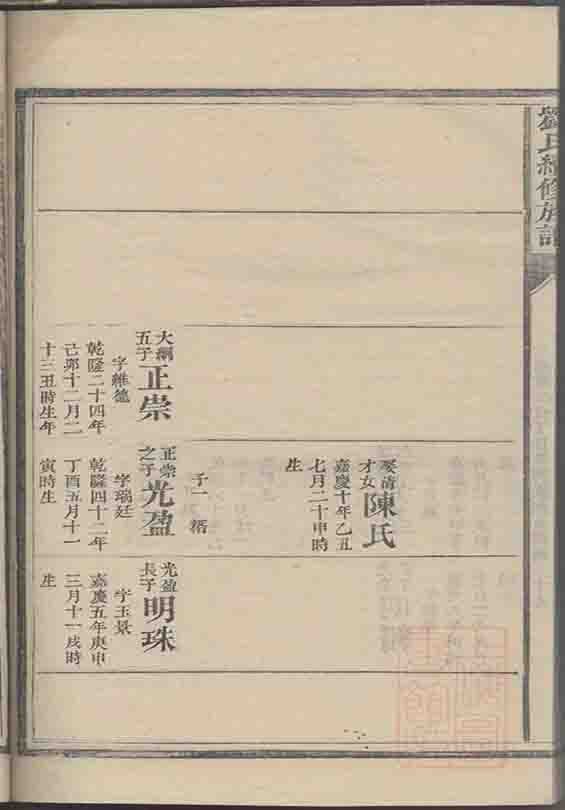 劉氏續修族譜
娶清
才女
陳氏
嘉慶十年乙丑
七月二十申時
生
子一
大綱
五子
正崇
字維德
乾隆二十四年
己卯十二月二
十三丑時生年
正崇
之子
光盈
字瑞廷
乾隆四十二年
丁酉五月十一
寅時生
光盈
長子
明珠
字玉景
嘉慶五年庚申
三月十一戌時
生